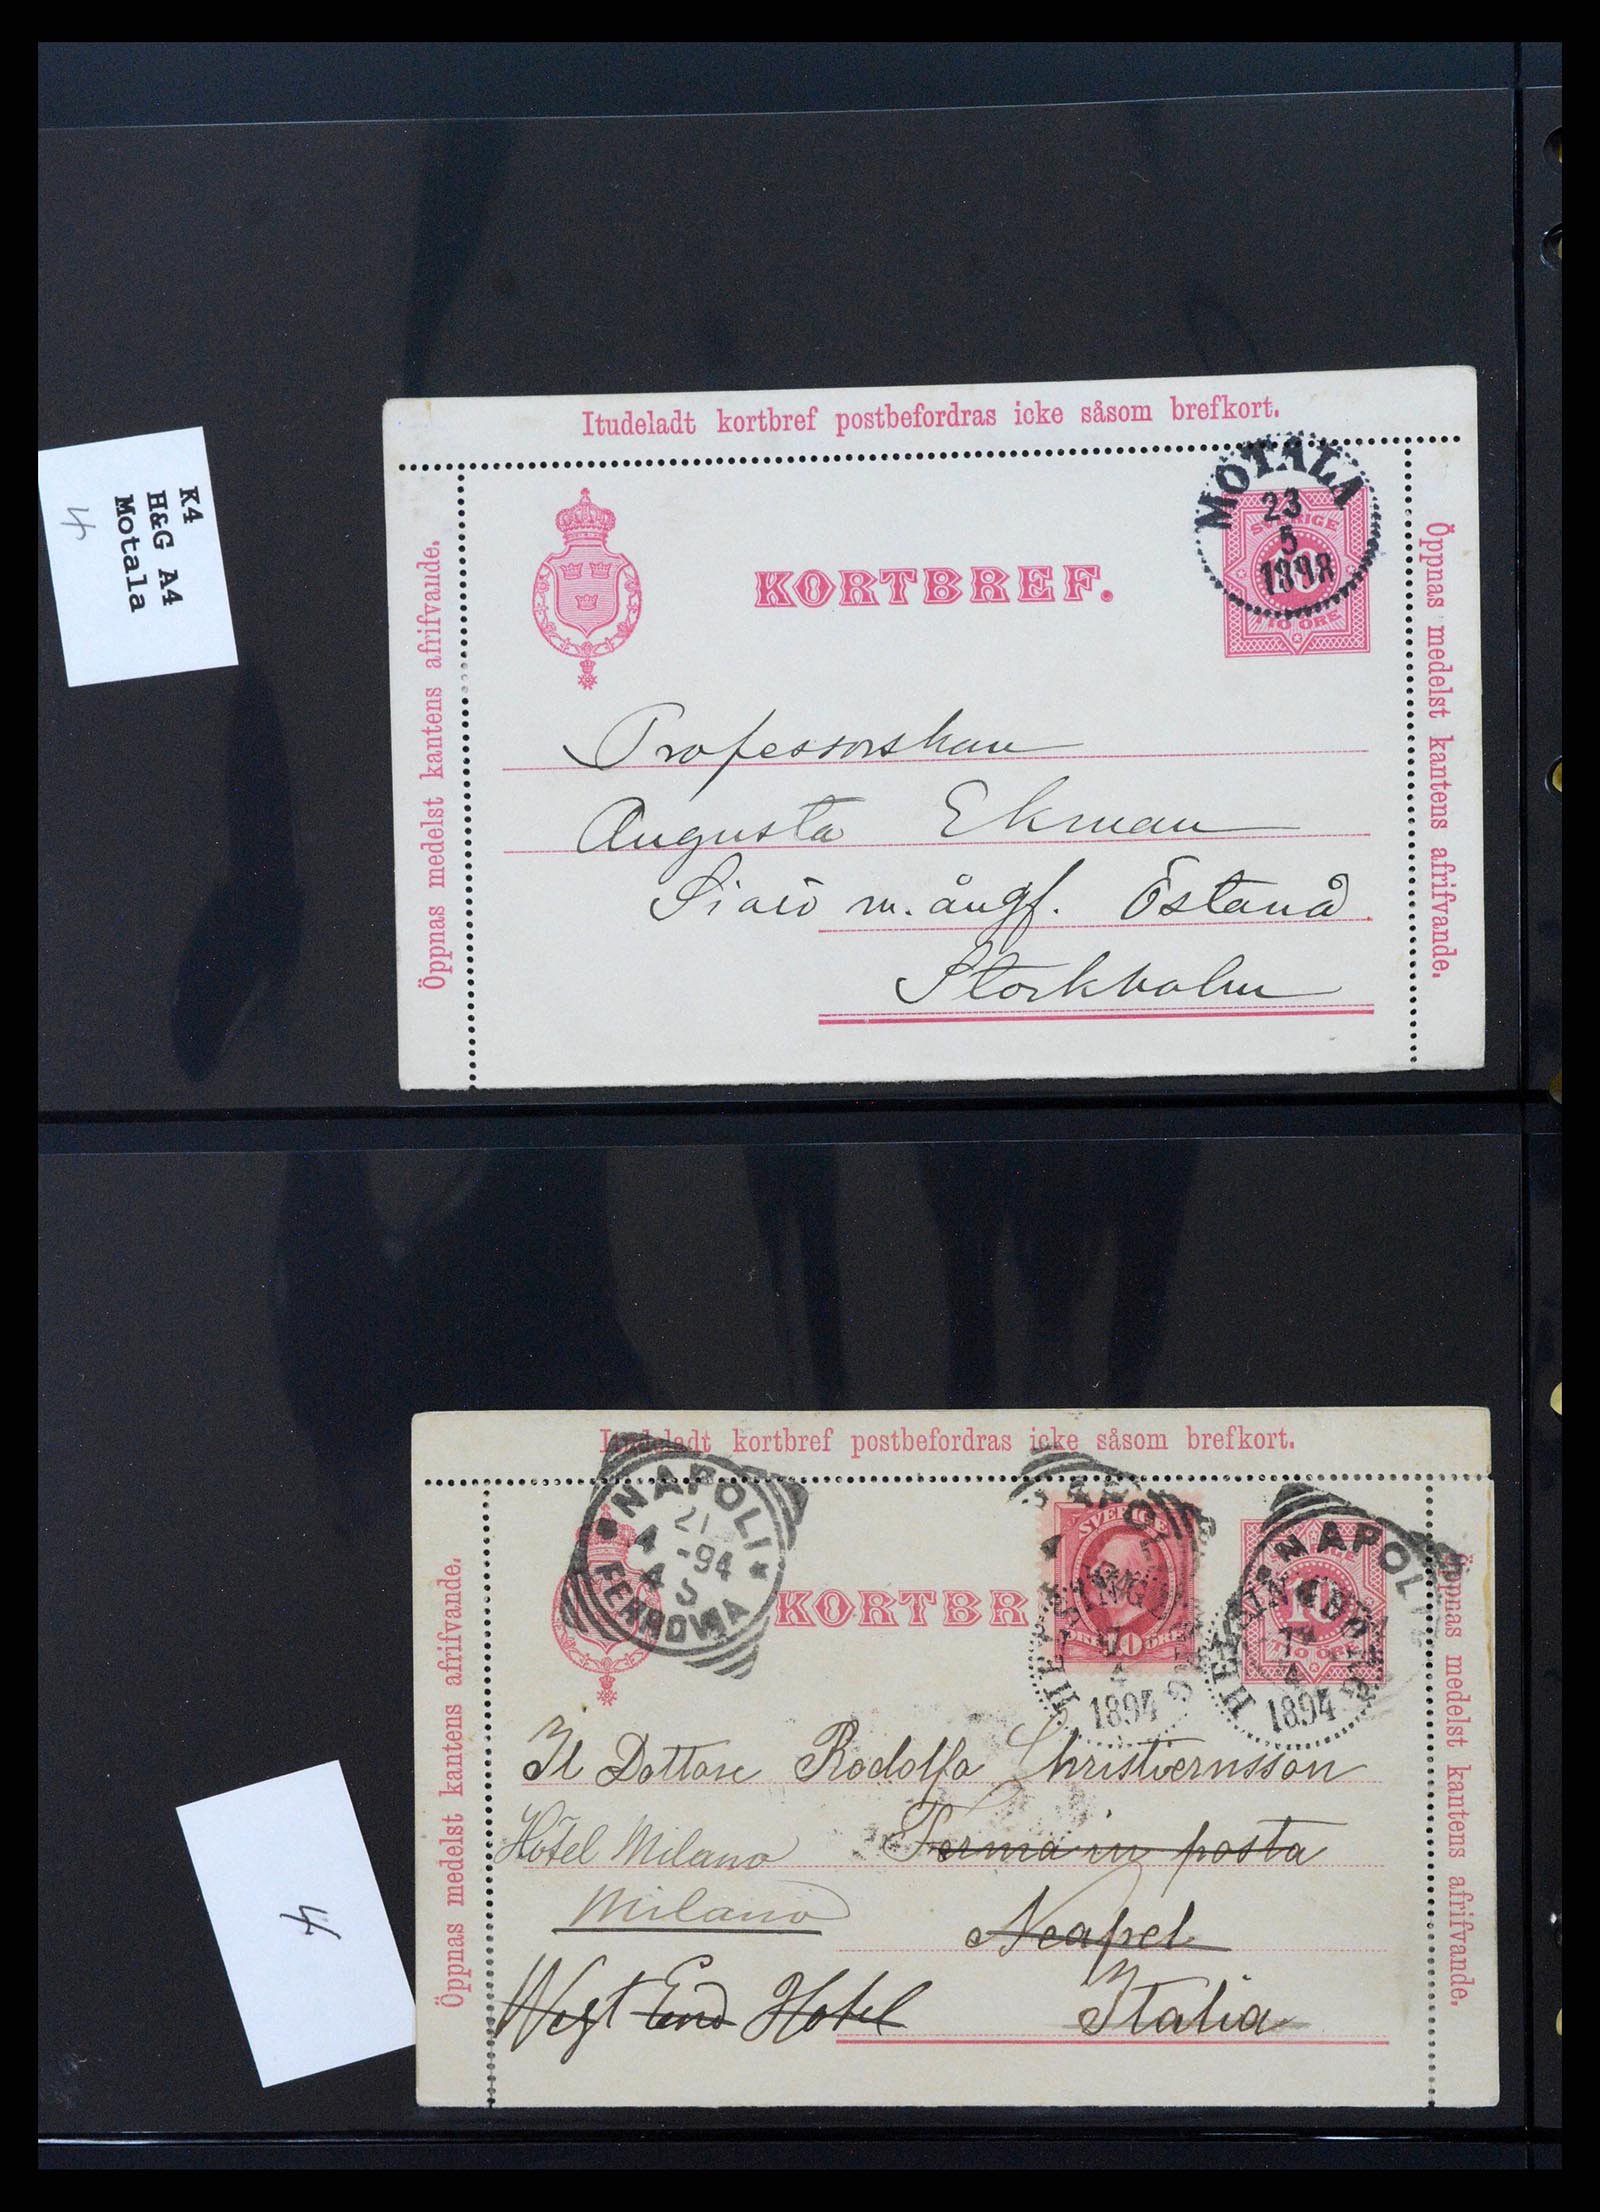 K4
H&G A4
Motala
4
Itudeladt kortbref postbefordras icke såsom brefkort.
Öppnas medelst kantens afrifvande.
KORTBREF.
MOTALA
23
5
1898
SVERIGE
10
TIO ÖRE
Öppnas medelst kantens afrifvande.
Professorskan
Augusta Ekman
m. ångf. Östanå
Stockholm
4
Itudeladt kortbref postbefordras icke såsom brefkort.
Öppnas medelst kantens afrifvande.
NAPOLI
21
4 -94
4 S
FERROVIA
KORTBR
SVERIGE
10
ÖRE ÖRE
HELSINGBORG
7
4
1894
NAPOLI
10
TIO ÖRE
HELSINGBORG
7
4
1894
Öppnas medelst kantens afrifvande.
Il Dottore Rodolfo Christiernsson
Hôtel Milano Ferma in posta
Milano
Neapel
West End Hotel Italia